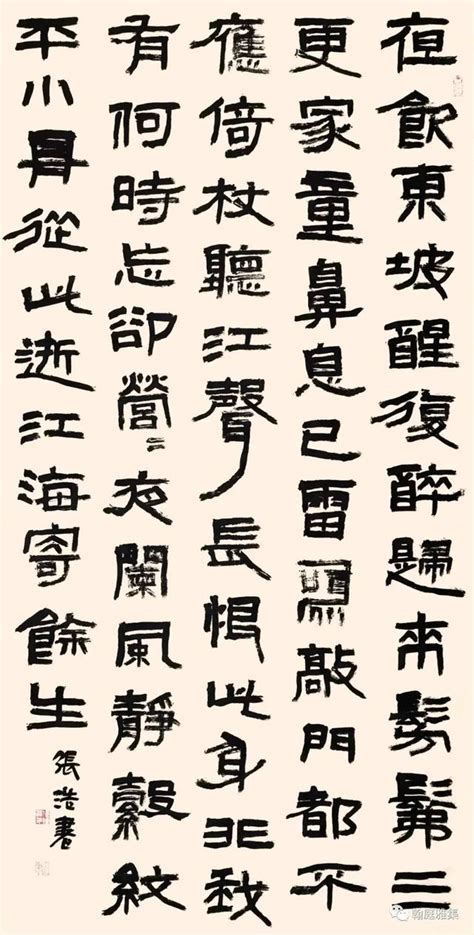 夜飲東坡醒復醉歸來髣髴三
更家童鼻息已雷鳴敲門都不
應倚杖聽江聲長恨此身非我
有何時忘卻營〻夜闌風靜縠紋
平小舟從此逝江海寄餘生
張浩書
翰庭雅集